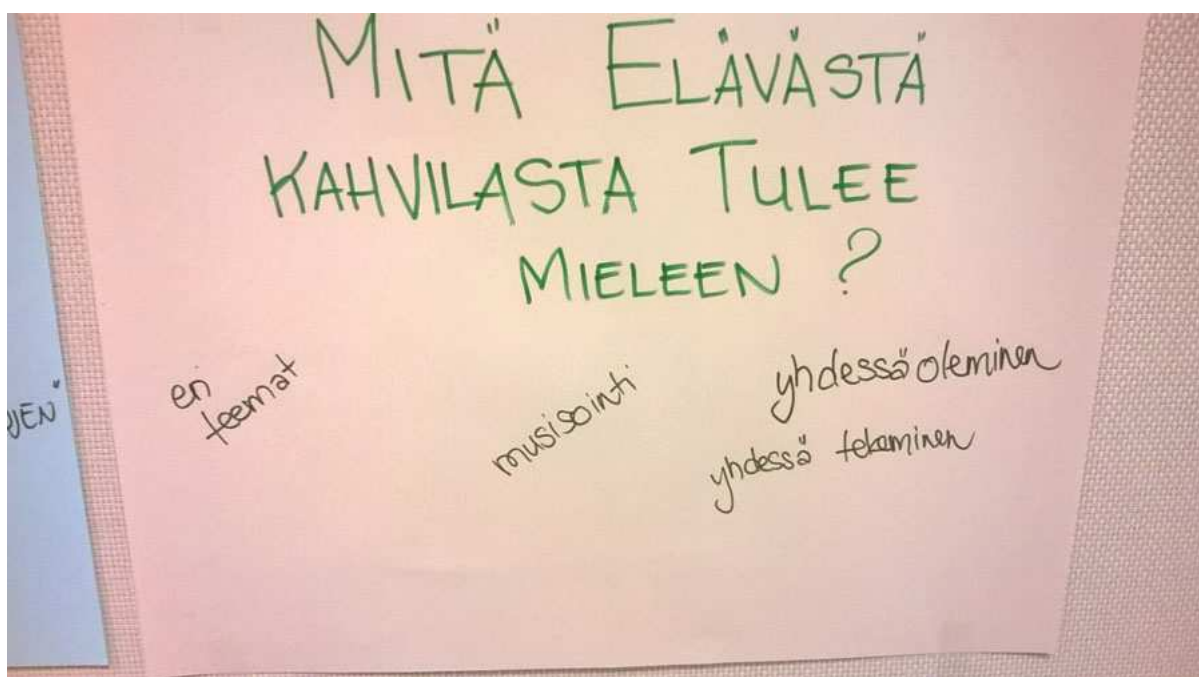 MITÄ ELÄVÄSTÄ
KAHVILASTA TULEE
MIELEEN ?
eri
teemat
musisointi
yhdessä oleminen
yhdessä tekeminen
JEN"